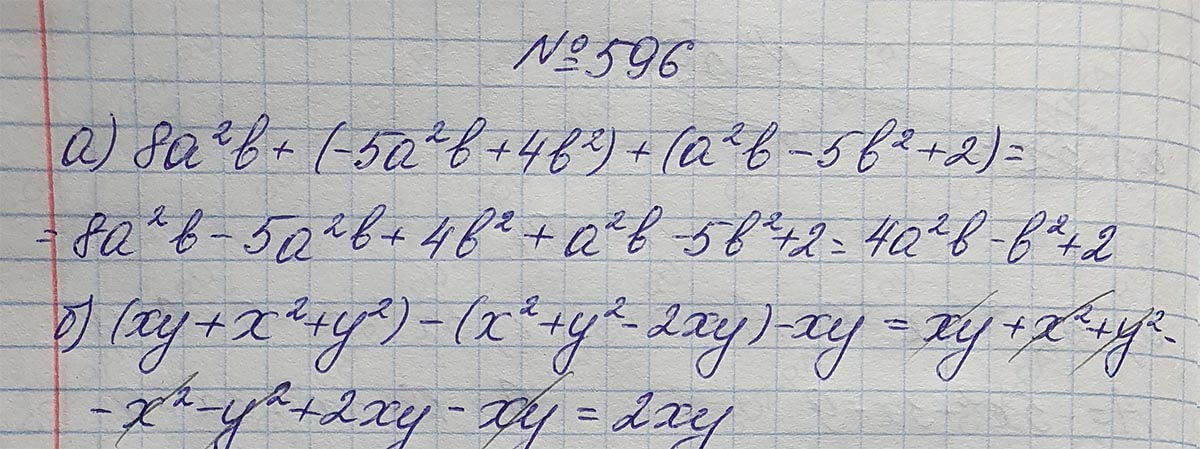 №596
а) 8a²b + (-5a²b + 4b²) + (a²b - 5b² + 2) =
= 8a²b - 5a²b + 4b² + a²b - 5b² + 2 = 4a²b - b² + 2
б) (xy + x² + y²) - (x² + y² - 2xy) - xy = xy + x² + y² -
- x² - y² + 2xy - xy = 2xy